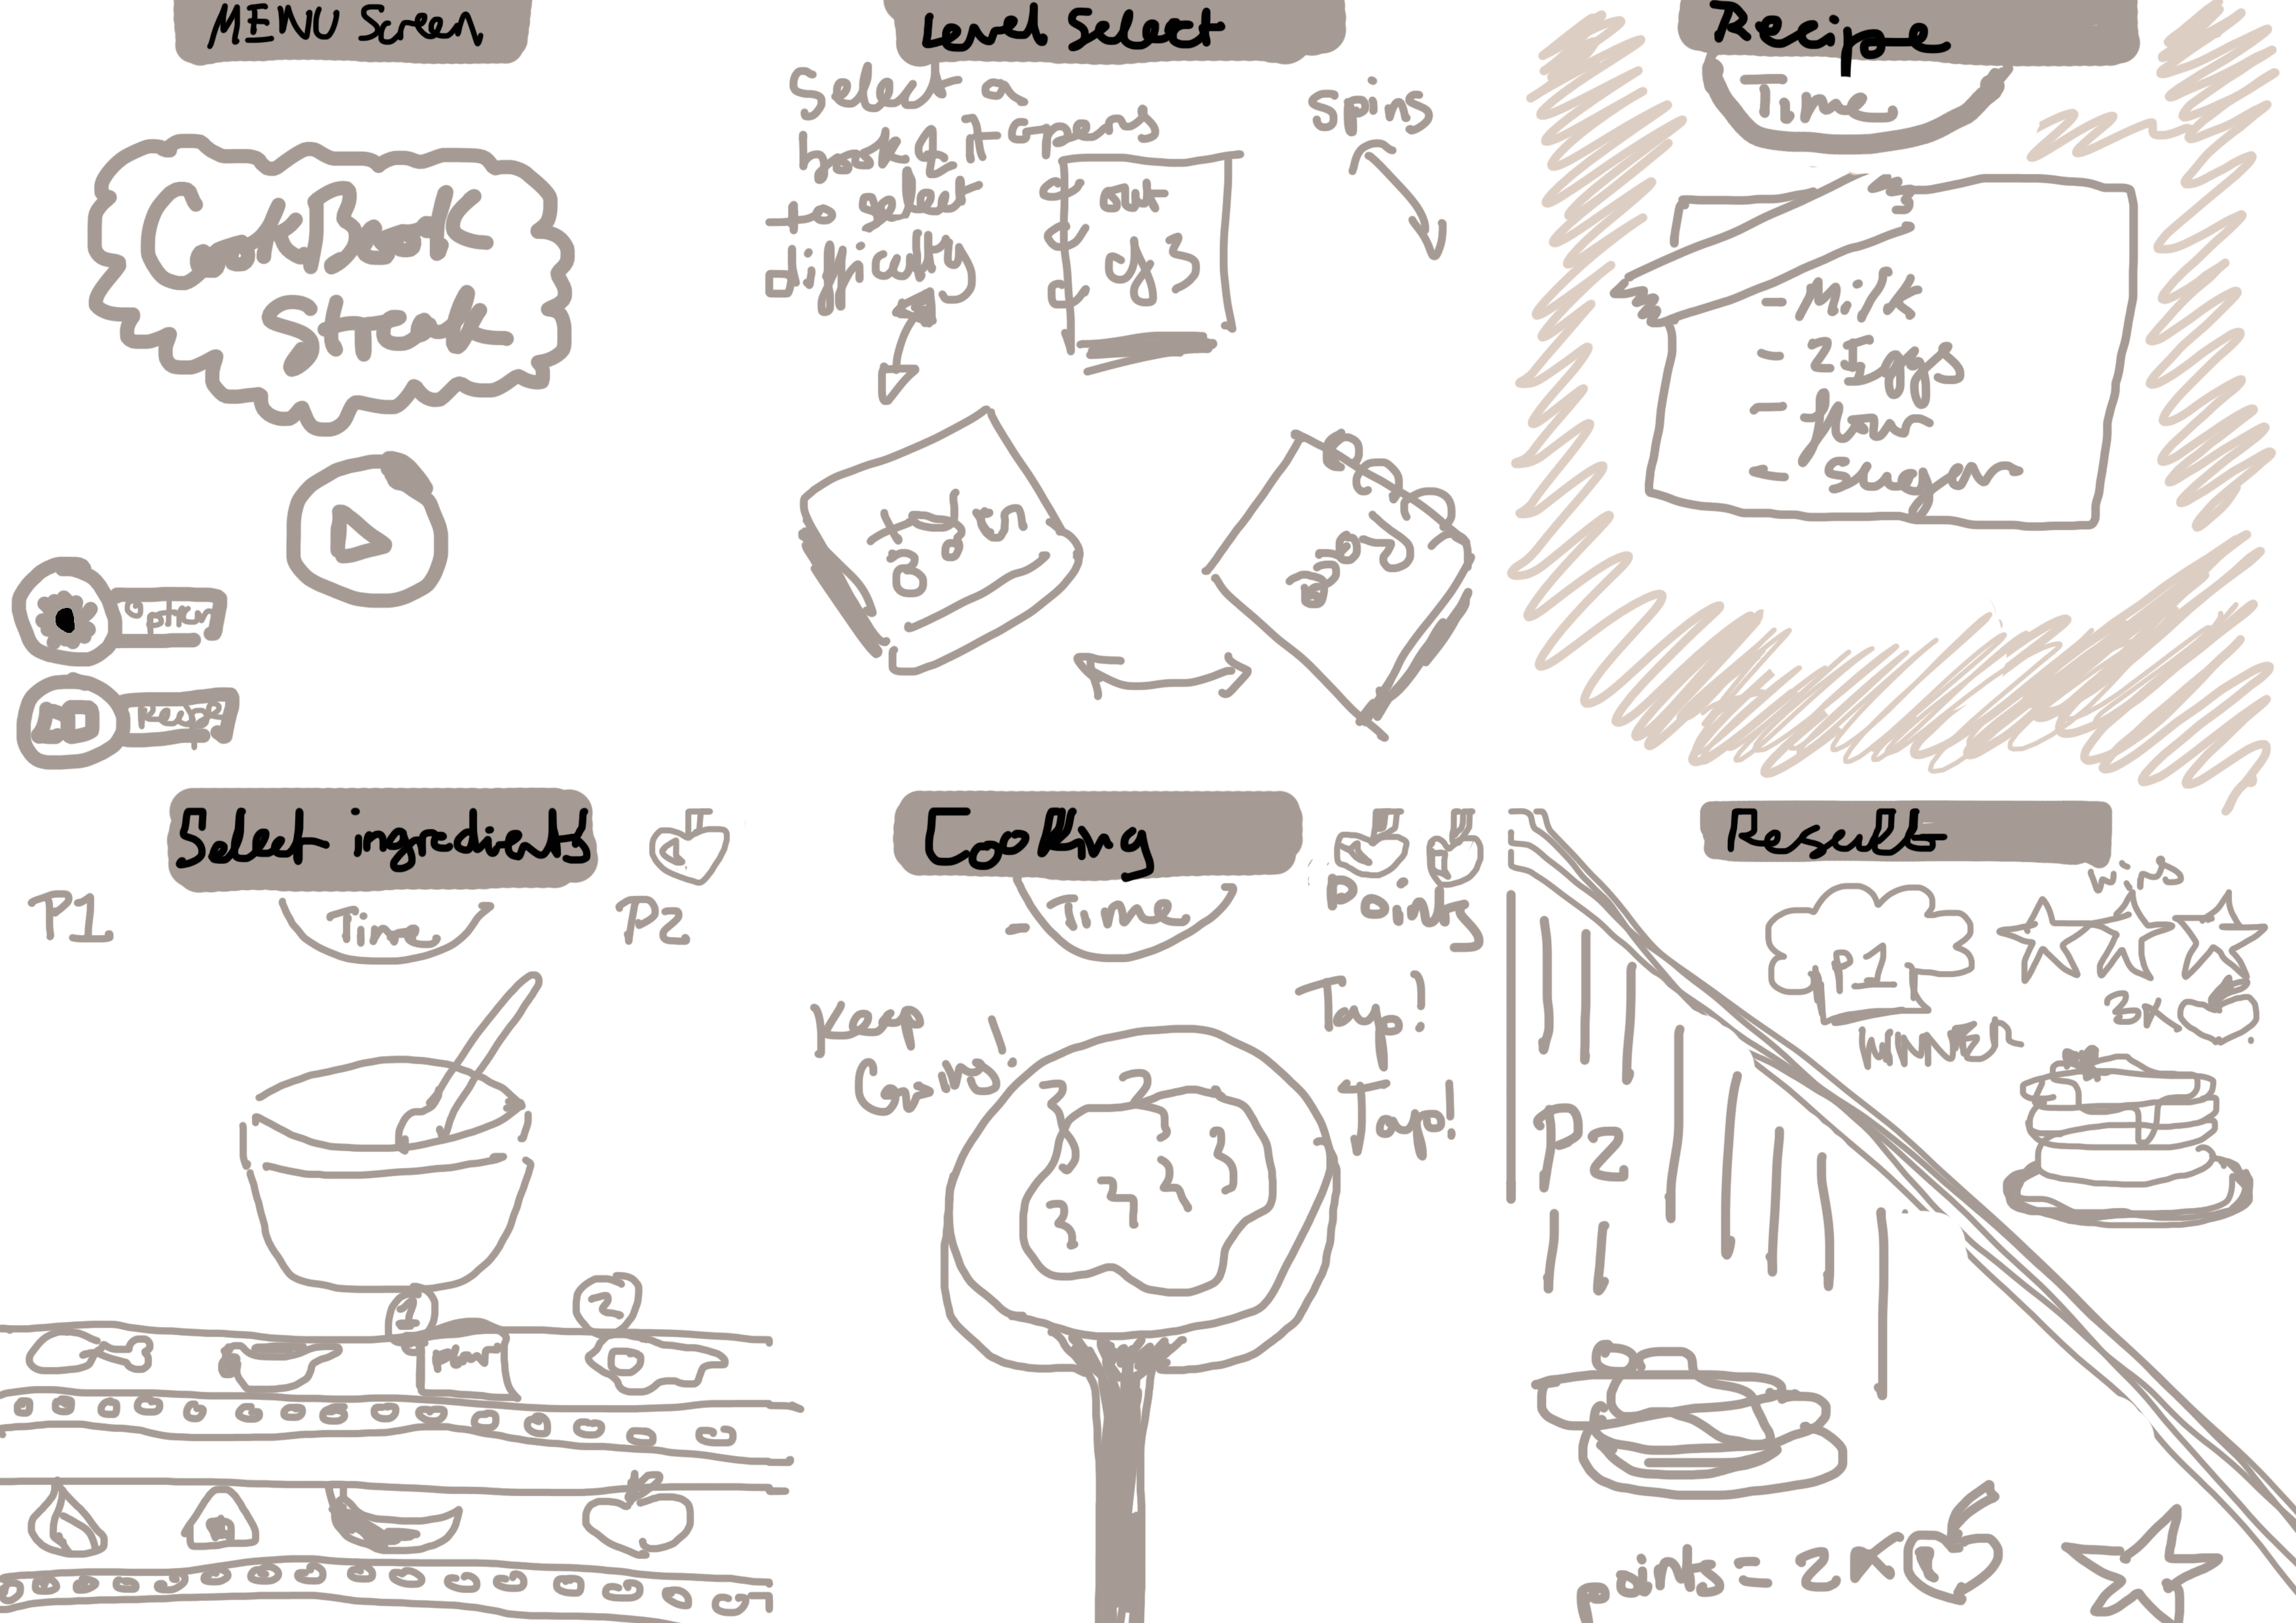 MENU Screen
CookBook
Streak
Option
Level Select
Select a
book & it opens
to select
difficulty
Spins
Recipe
Time
- Milk
- 2 Eggs
- flour
- Sugar
Select ingredients
P1
Time
P2
1
2
Cooking
Time
Points
Keep
Going!
Tap!
Tap!
Results
P1
WINNER
Wins
3x
P2
points = 2x